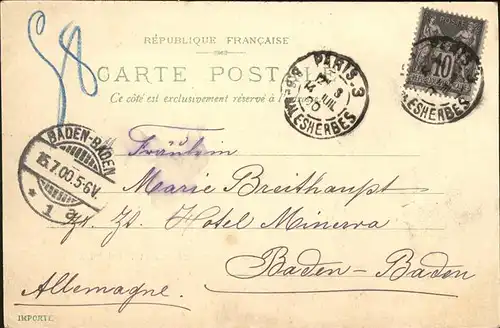 58
RÉPUBLIQUE FRANÇAISE
CARTE POSTALE
Ce côté est exclusivement réservé à
PARIS 3
14 JUIL 00
MALESHERBES
POSTES
10
MALESHERBES
BADEN-BADEN
15.7.00.5-6V.
* 1 a
Fräulein
Marie Breithaupt
z. Zt. Hotel Minerva
Baden-Baden
Allemagne.
IMPORTÉ